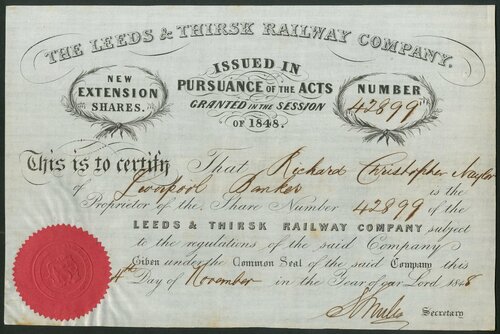 THE LEEDS & THIRSK RAILWAY COMPANY.
NEW
EXTENSION
SHARES.
ISSUED IN
PURSUANCE OF THE ACTS
GRANTED IN THE SESSION
OF 1848.
NUMBER
42899
This is to certify That Richard Christopher Naylor
of Liverpool Banker is the
Proprietor of the Share Number 42899 of the
LEEDS & THIRSK RAILWAY COMPANY subject
to the regulations of the said Company
Given under the Common Seal of the said Company this
4th Day of November in the Year of our Lord 1848
Secretary